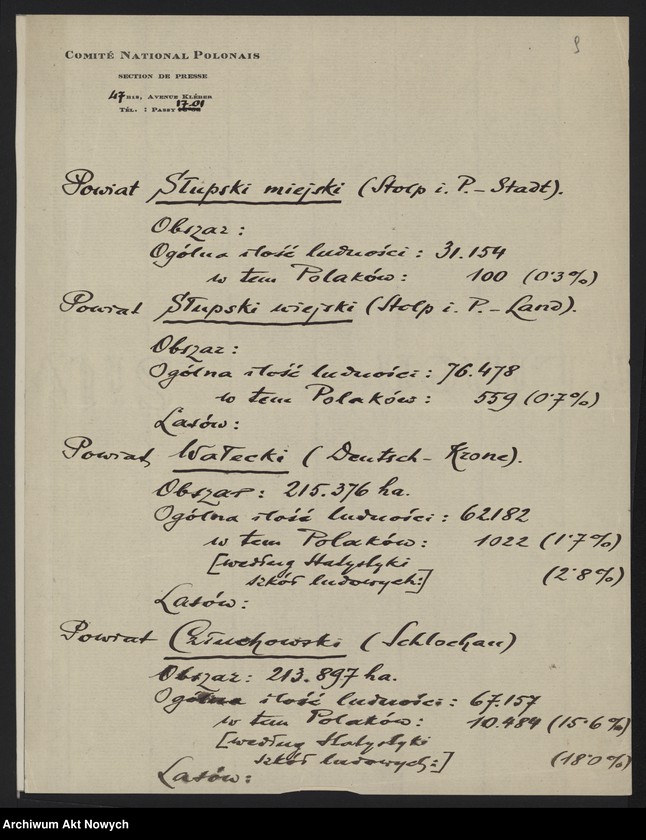 9
COMITÉ NATIONAL POLONAIS
SECTION DE PRESSE
47 BIS, AVENUE KLÉBER
TÉL. : PASSY 17.01
Powiat Słupski miejski (Stolp i. P. – Stadt).
Obszar :
Ogólna ilość ludności : 31.154
w tem Polaków : 100 (0·3%)
Powiat Słupski wiejski (Stolp i. P. – Land).
Obszar :
Ogólna ilość ludności : 76.478
w tem Polaków : 559 (0·7%)
Lasów :
Powiat Wałecki (Deutsch – Krone).
Obszar : 215.376 ha.
Ogólna ilość ludności : 62182
w tem Polaków : 1022 (1·7%)
[według statystyki
szkół ludowych:] (2·8%)
Lasów :
Powiat Człuchowski (Schlochau)
Obszar : 213.897 ha.
Ogólna ilość ludności : 67.157
w tem Polaków : 10.484 (15·6%)
[według statystyki
szkół ludowych:] (18·0%)
Lasów :
Archiwum Akt Nowych